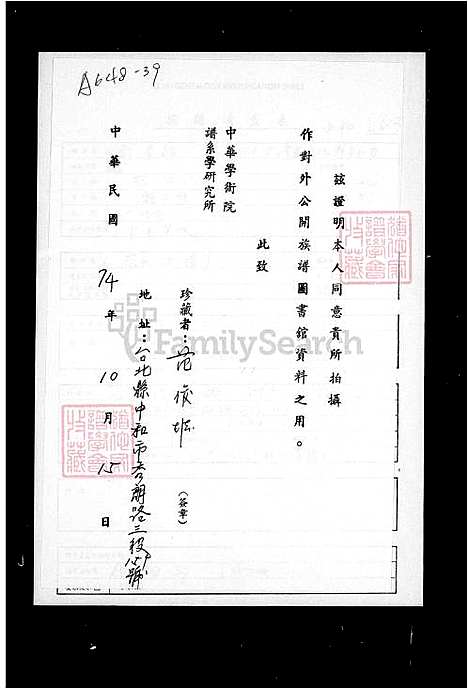 A648-39
茲證明本人同意貴所拍攝
作對外公開族譜圖書館資料之用。
此致
中華學術院
譜系學研究所
珍藏者：范俊雄（簽章）
地址：台北縣中和市秀朗路三段
中華民國74年10月15日
FamilySearch
譜學會
收藏
譜學會
收藏